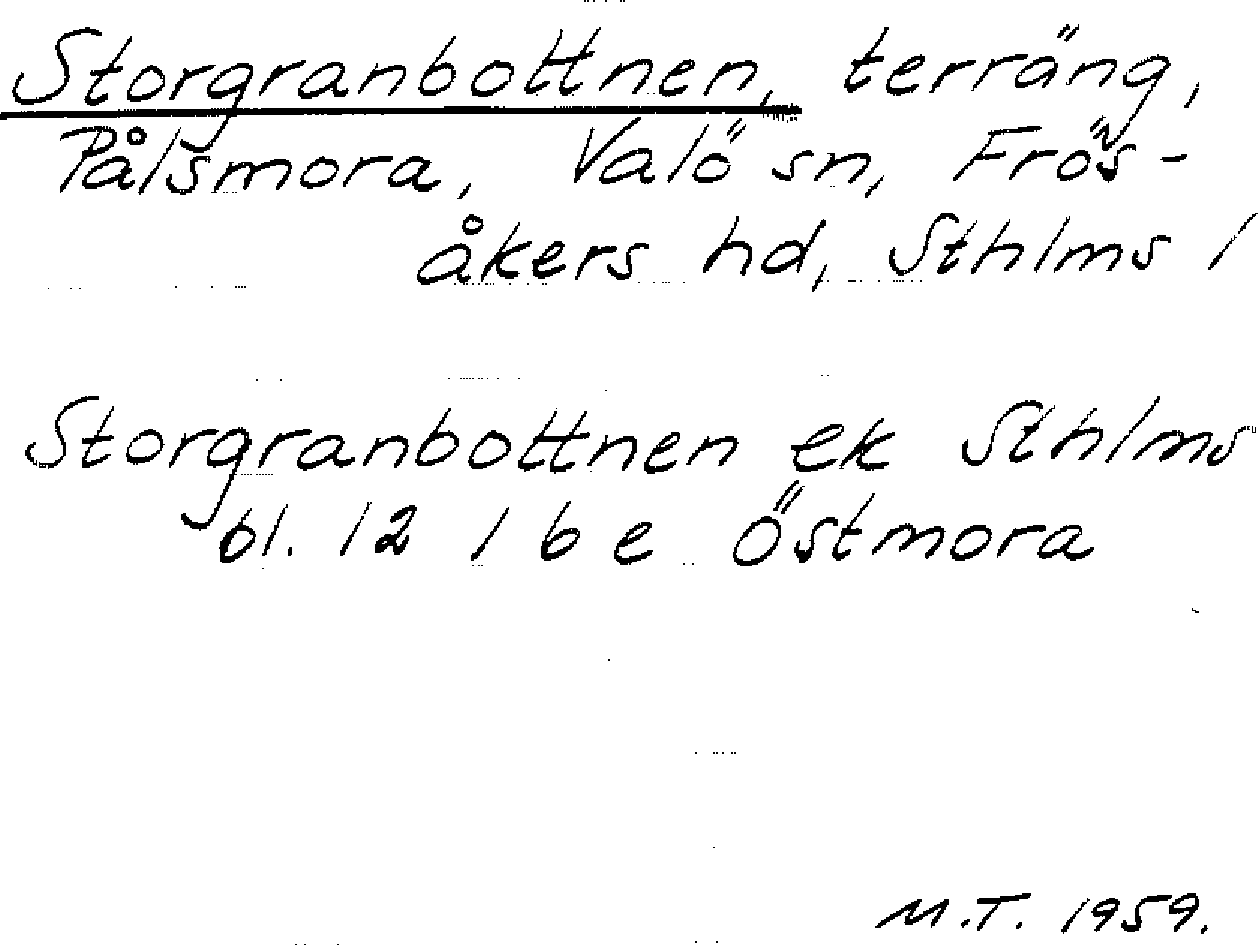 Storgranbottnen, terräng,
Pålsmora, Valö sn, Frös-
åkers hd, Sthlms l
Storgranbottnen ek Sthlms
bl. 12 I 6 e Östmora
M.T. 1959.